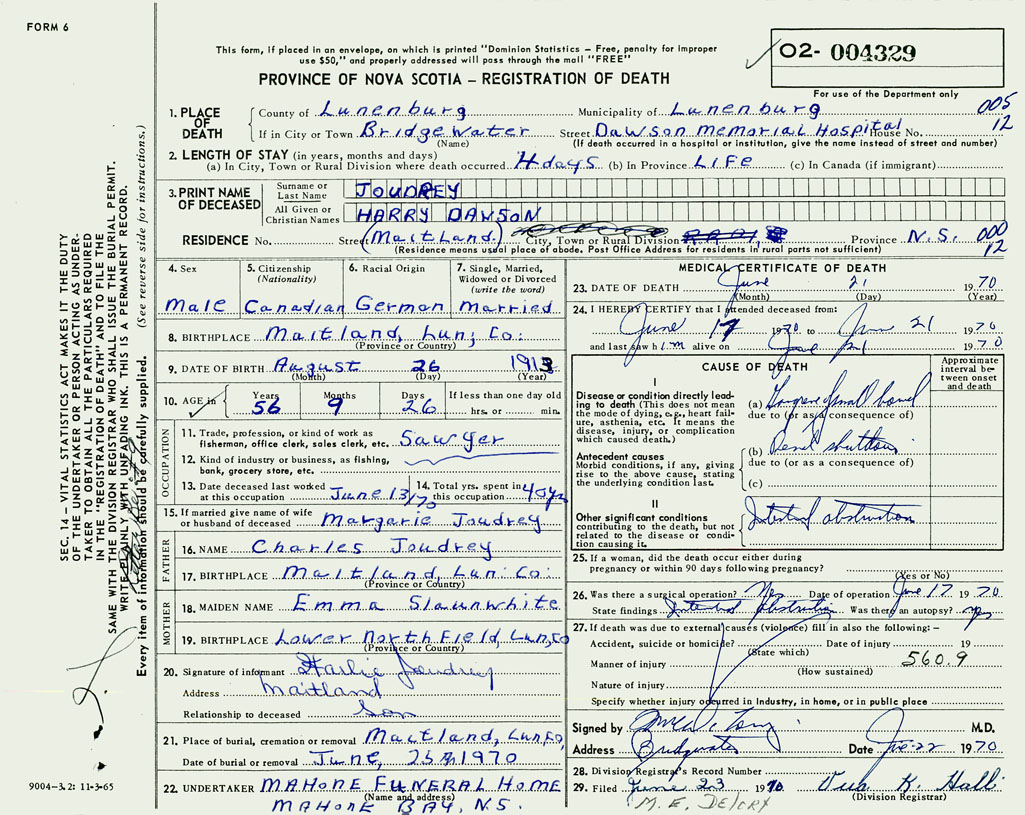 FORM 6
This form, if placed in an envelope, on which is printed "Dominion Statistics – Free, penalty for improper
use $50," and properly addressed will pass through the mail "FREE"
O2- 004329
For use of the Department only
PROVINCE OF NOVA SCOTIA – REGISTRATION OF DEATH
SEC. 14 – VITAL STATISTICS ACT MAKES IT THE DUTY
OF THE UNDERTAKER OR PERSON ACTING AS UNDER-
TAKER TO OBTAIN ALL THE PARTICULARS REQUIRED
IN THE "REGISTRATION OF DEATH" AND TO FILE THE
SAME WITH THE DIVISION REGISTRAR WHO SHALL ISSUE THE BURIAL PERMIT.
WRITE PLAINLY WITH UNFADING INK. THIS IS A PERMANENT RECORD.
Every item of information should be carefully supplied. (See reverse side for instructions.)
1. PLACE OF DEATH County of Lunenburg Municipality of Lunenburg 005
If in City or Town Bridgewater Street Dawson Memorial Hospital House No. 12
(Name) (If death occurred in a hospital or institution, give the name instead of street and number)
2. LENGTH OF STAY (in years, months and days)
(a) In City, Town or Rural Division where death occurred 4 days (b) In Province LIFE (c) In Canada (if immigrant)
3. PRINT NAME OF DECEASED Surname or Last Name JOUDREY
All Given or Christian Names HARRY DAWSON
RESIDENCE No. Street (Maitland) City, Town or Rural Division Province N.S. 000
(Residence means usual place of abode. Post Office Address for residents in rural parts not sufficient) 12
4. Sex 5. Citizenship (Nationality) 6. Racial Origin 7. Single, Married, Widowed or Divorced (write the word)
Male Canadian German Married
8. BIRTHPLACE Maitland, Lun; Co:
(Province or Country)
9. DATE OF BIRTH August 26 1913
(Month) (Day) (Year)
10. AGE in Years Months Days If less than one day old
56 9 26 hrs. or min.
OCCUPATION
11. Trade, profession, or kind of work as
fisherman, office clerk, sales clerk, etc. Sawyer
12. Kind of industry or business, as fishing,
bank, grocery store, etc.
13. Date deceased last worked at this occupation June 13/70 14. Total yrs. spent in this occupation 40yrs
15. If married give name of wife
or husband of deceased Margarie Joudrey
FATHER
16. NAME Charles Joudrey
17. BIRTHPLACE Maitland, Lun: Co:
(Province or Country)
MOTHER
18. MAIDEN NAME Emma Slaunwhite
19. BIRTHPLACE Lower North Field, Lun, Co
(Province or Country)
20. Signature of informant Harlie Joudrey
Address Maitland
Relationship to deceased Son
21. Place of burial, cremation or removal Maitland, Lun, Co,
Date of burial or removal June, 23rd, 1970
22. UNDERTAKER MAHONE FUNERAL HOME
(Name and address)
MAHONE BAY, N.S.
9004-3.2: 11-3-65
MEDICAL CERTIFICATE OF DEATH
23. DATE OF DEATH June 21 1970
(Month) (Day) (Year)
24. I HEREBY CERTIFY that I attended deceased from:
June 17 1970 to June 21 1970
and last saw him alive on June 21 1970
CAUSE OF DEATH
Approximate interval between onset and death
I
Disease or condition directly lead-
ing to death (This does not mean
the mode of dying, e.g., heart fail-
ure, asthenia, etc. It means the
disease, injury, or complication
which caused death.)
(a) small bowel
due to (or as a consequence of)
Antecedent causes
Morbid conditions, if any, giving
rise to the above cause, stating
the underlying condition last.
(b) Renal shutdown
due to (or as a consequence of)
(c)
II
Other significant conditions
contributing to the death, but not
related to the disease or condi-
tion causing it.
Intestinal obstruction
25. If a woman, did the death occur either during
pregnancy or within 90 days following pregnancy?
(Yes or No)
26. Was there a surgical operation? Yes Date of operation June 17 1970
State findings Intestinal obstruction Was there an autopsy?
27. If death was due to external causes (violence) fill in also the following: –
Accident, suicide or homicide? Date of injury 19
(State which)
Manner of injury 560.9
(How sustained)
Nature of injury
Specify whether injury occurred in industry, in home, or in public place
Signed by M.D.
Address Bridgewater Date June 22 1970
28. Division Registrar's Record Number
29. Filed June 23 1970 K. Hall
(Division Registrar)